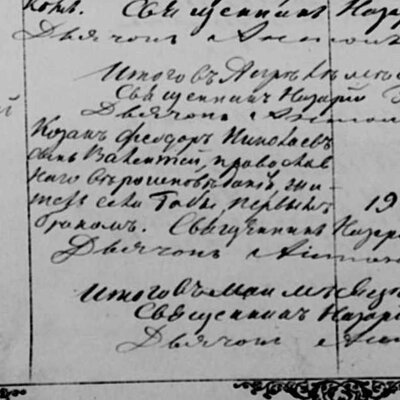 Священникъ Назарі
Дьячонъ
Итого въ Апрѣлѣ мѣс
Священникъ Назарій
Дьячонъ
Козакъ Феодоръ Николаевъ
сынъ Валентей, православ
наго вѣроисповѣданія, жи
тель села первымъ 19
бракомъ. Священникъ Назарі
Дьячонъ
Итого въ маи мѣсяц
Священникъ Назарій
Дьячонъ